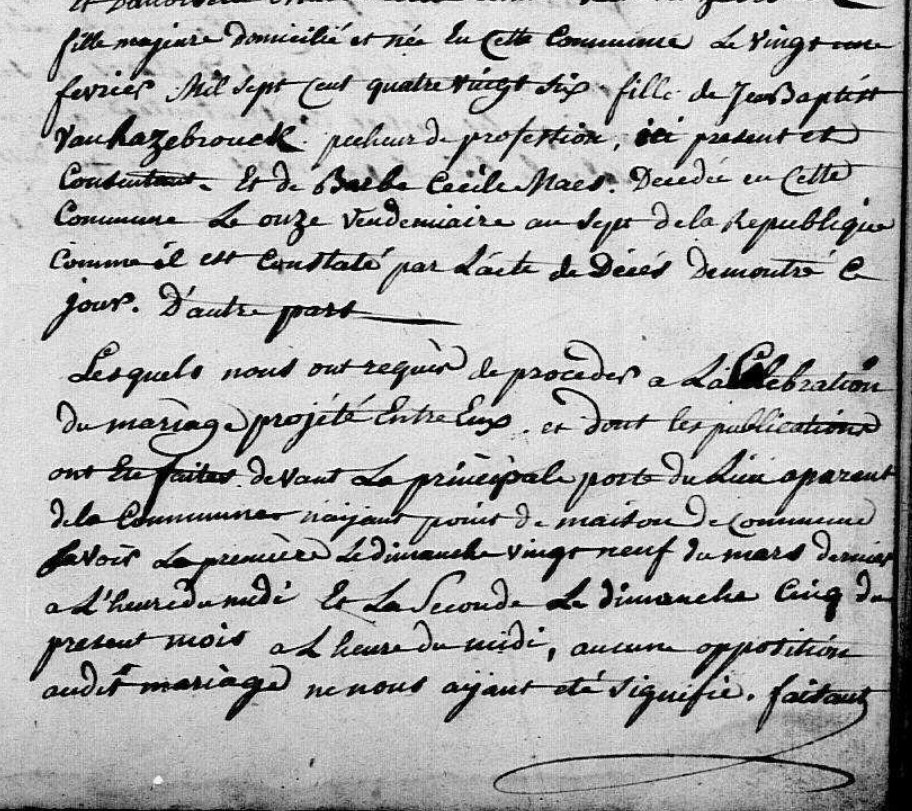 fille majeure domicilié et née En Cette Commune Le vingt une
fevrier Mil sept Cent quatre vingt six fille de Jean Baptist
vanhazebrouck pecheur de profession, ici present et
Consentant. Et de Barbe Cecile Maes. Decedée en Cette
Commune Le onze Vendemiaire an Sept de la Republique
Comme il est Constaté par L'acte de Décés Demontré Ce
jour. D'autre part
Lesquels nous ont requis de proceder a La Célébration
du mariage projété Entre Eux. et dont les publications
ont Eté faites devant La principale porte du Lieu aparent
de la Commune n'aÿant point de maison de Commune
Savoir La premiére Le dimanche vingt neuf du mars dernier
a L'heure du midi Et La Seconde Le dimanche Cinq du
present mois a L'heure du midi, aucune opposition
audit mariage ne nous aÿant eté Signifie. faisant